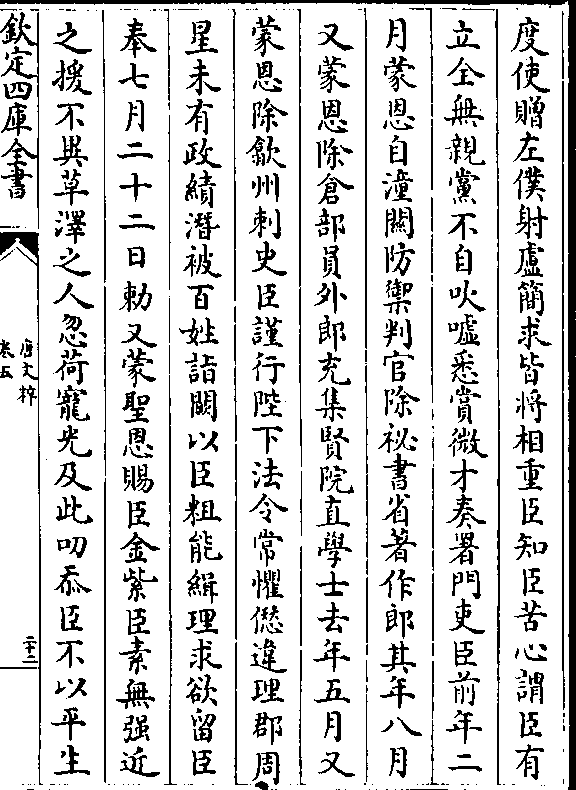 度使贈左僕射盧簡求皆將相重臣知臣苦心謂臣有
立全無親黨不自吹噓悉賞微才奏署門吏臣前年二
月蒙恩自潼關防禦判官除祕書省著作郎其年八月
又蒙恩除倉部員外郎充集賢院直學士去年五月又
蒙恩除歙州刺史臣謹行陛下法令常懼愆違理郡周
星未有政績潛被百姓詣闕以臣粗能緝理求欲留臣
奉七月二十二日勅又蒙聖恩賜臣金紫臣素無强近
之援不與草澤之人忽荷寵光及此叨忝臣不以平生
欽定四庫全書
唐文粹
卷五
二十二